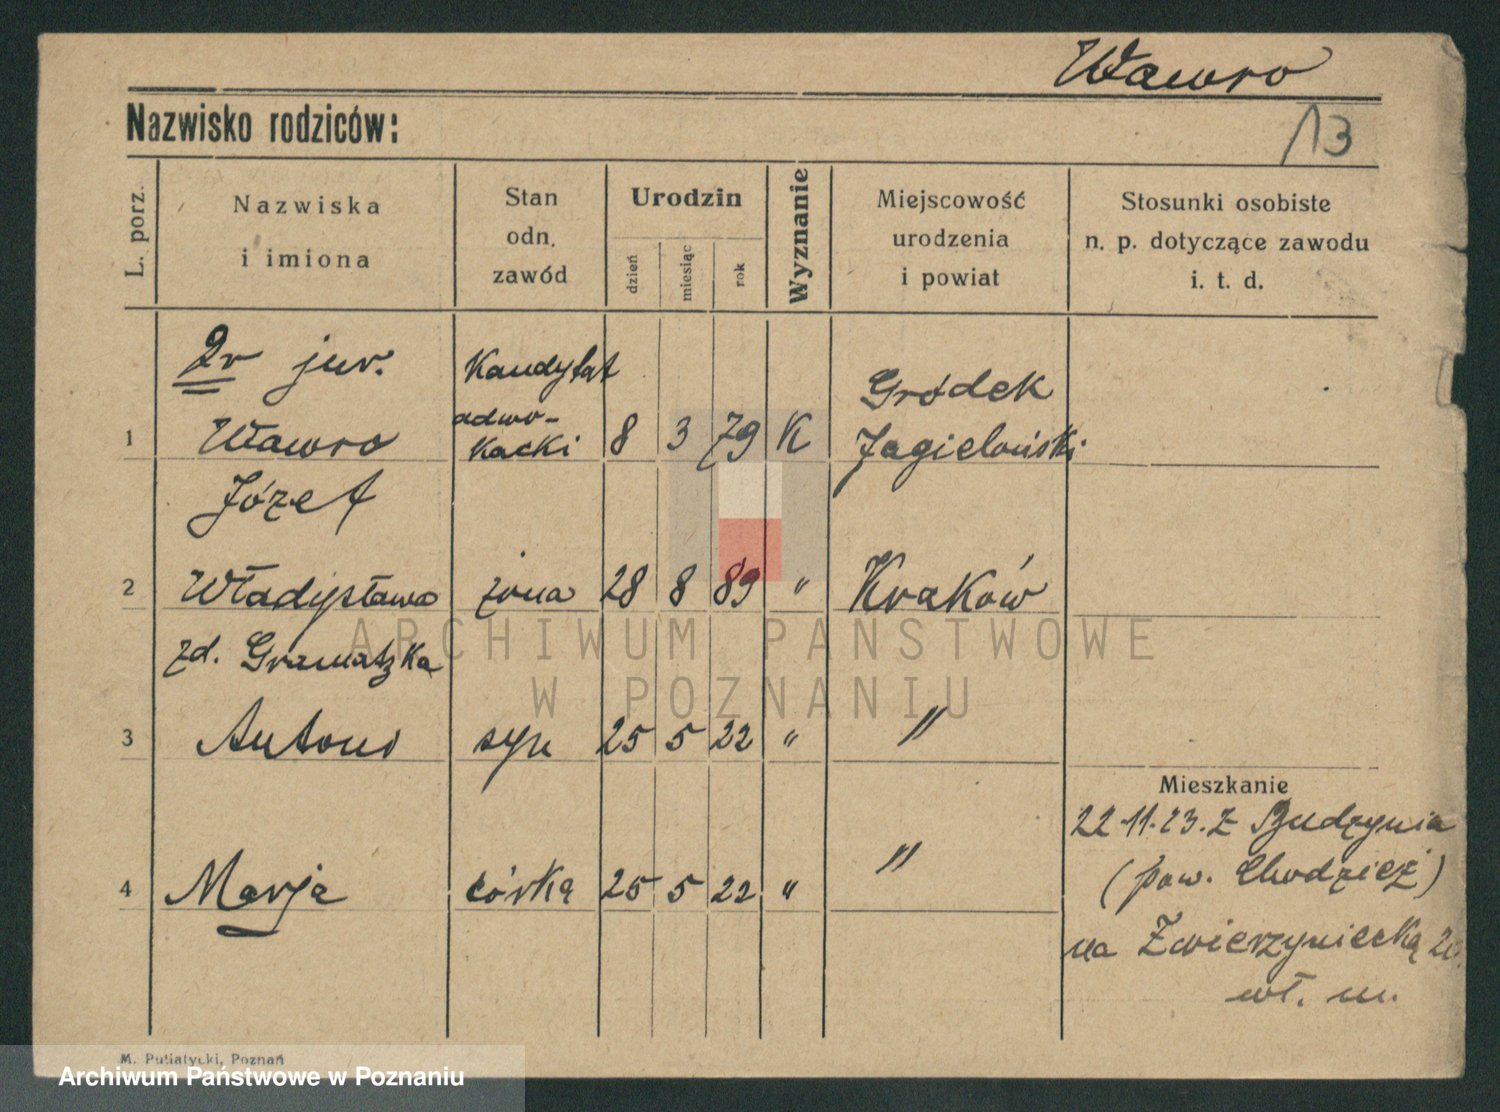 Wawro
Nazwisko rodziców:
13
L. porz.
Nazwiska
i imiona
Stan
odn.
zawód
Urodzin
dzień
miesiąc
rok
Wyznanie
Miejscowość
urodzenia
i powiat
Stosunki osobiste
n. p. dotyczące zawodu
i. t. d.
Dr jur.
Kandydat
Gródek
adwo-
1 Wawro kacki 8 3 79 K Jagieloński
Józef
2 Władysława żona 28 8 89 " Kraków
zd. Gramatzka
3 Antoni syn 25 5 22 " "
Mieszkanie
22-11-23. Z Budzynia
4 Marja córka 25 5 22 " "
(pow. Chodzież)
na Zwierzyniecką
wł. m.
M. Putiatycki, Poznań
ARCHIWUM PAŃSTWOWE
W POZNANIU
Archiwum Państwowe w Poznaniu